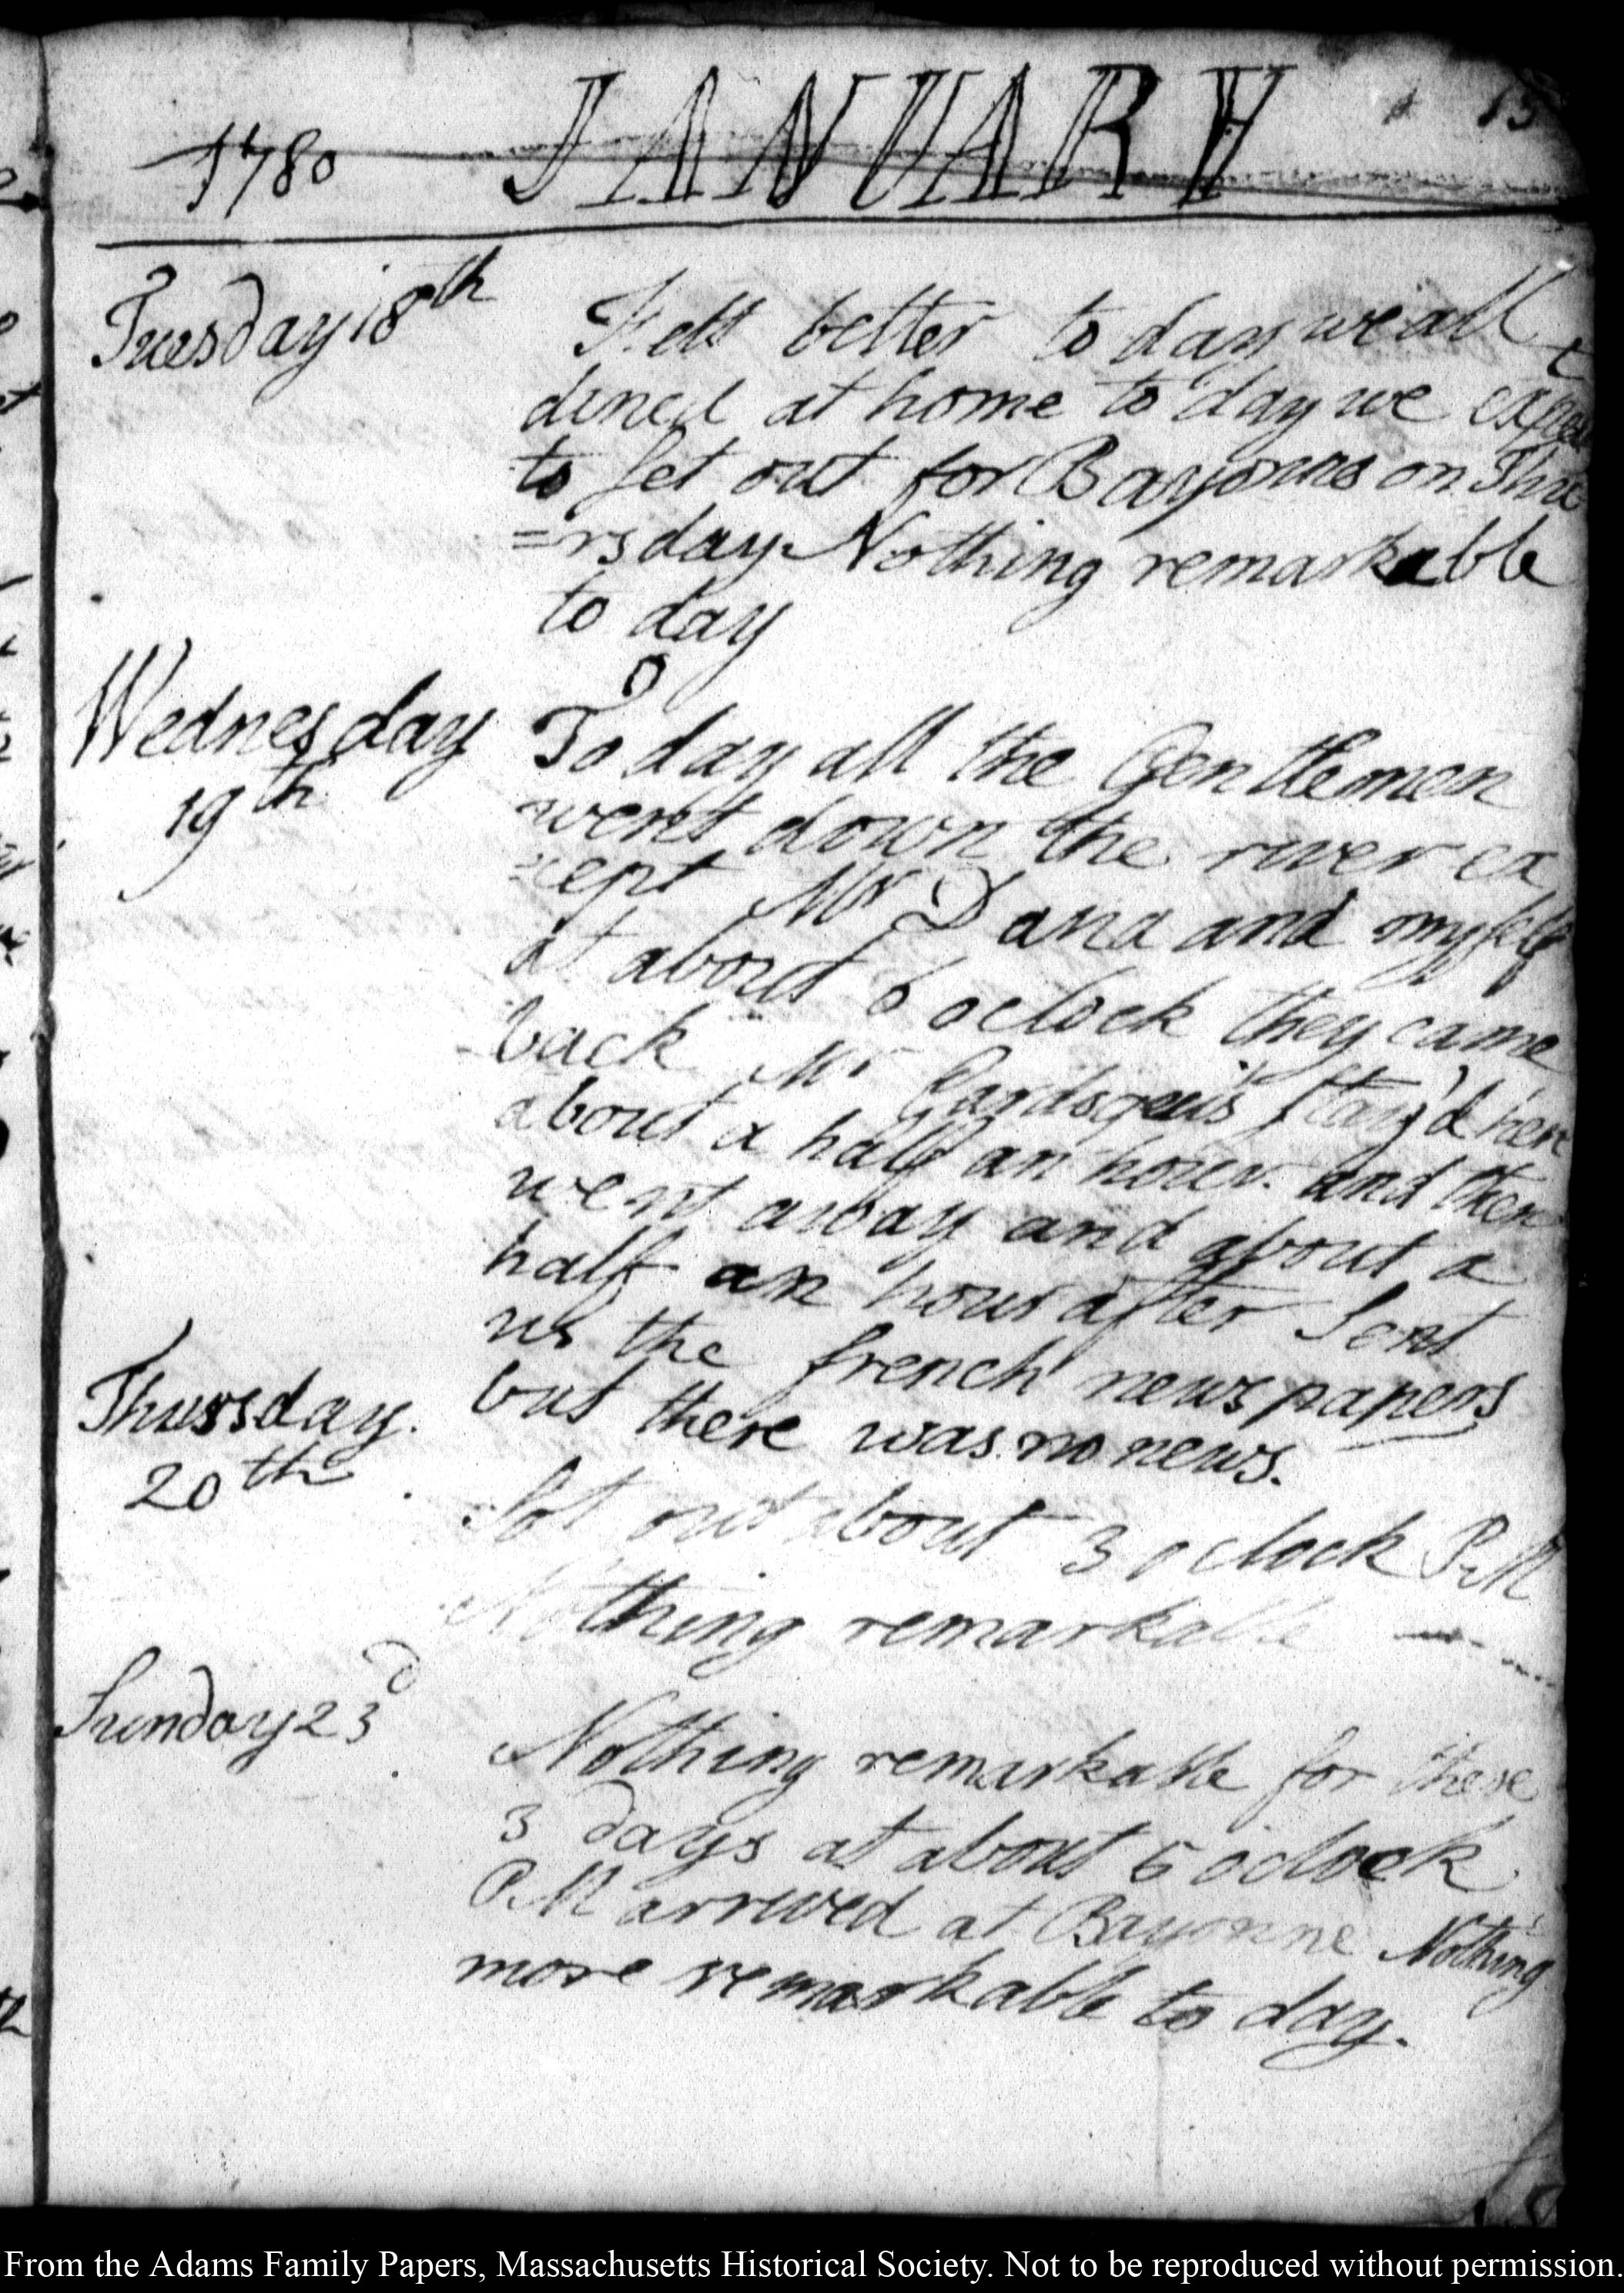 1780 JANUARY 15
Tuesday 18th
Felt better to day we all
dined at home to day we expect
to set out for Bayonne on Thu
=rsday. Nothing remarkable
to day
Wednesday
19th
To day all the Gentlemen
went down the river ex
=cept Mr Dana and myself
at about 6 oclock they came
back Mr stay'd here
about a half an hour. and then
went away and about a
half an hour after Sent
us the french news papers
but there was no news.
Thursday.
20th
Set out about 3 o clock P.M
Nothing remarkable
Sunday 23d
Nothing remarkable for these
3 days at about 5 oclock
P.M arrived at Bayonne Nothing
more remarkable to day.
From the Adams Family Papers, Massachusetts Historical Society. Not to be reproduced without permission.